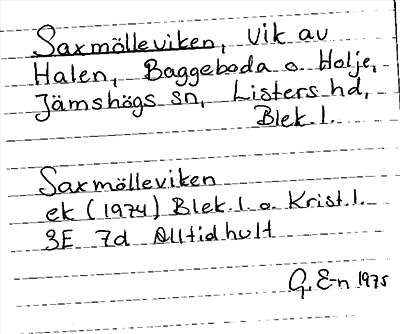 Saxmölleviken, vik av
Halen, Baggeboda o. Holje,
Jämshögs sn, Listers hd,
Blek. l.
Saxmölleviken
ek (1974) Blek. l. o. Krist. l.
3E 7d Alltidhult
G. E-n 1975